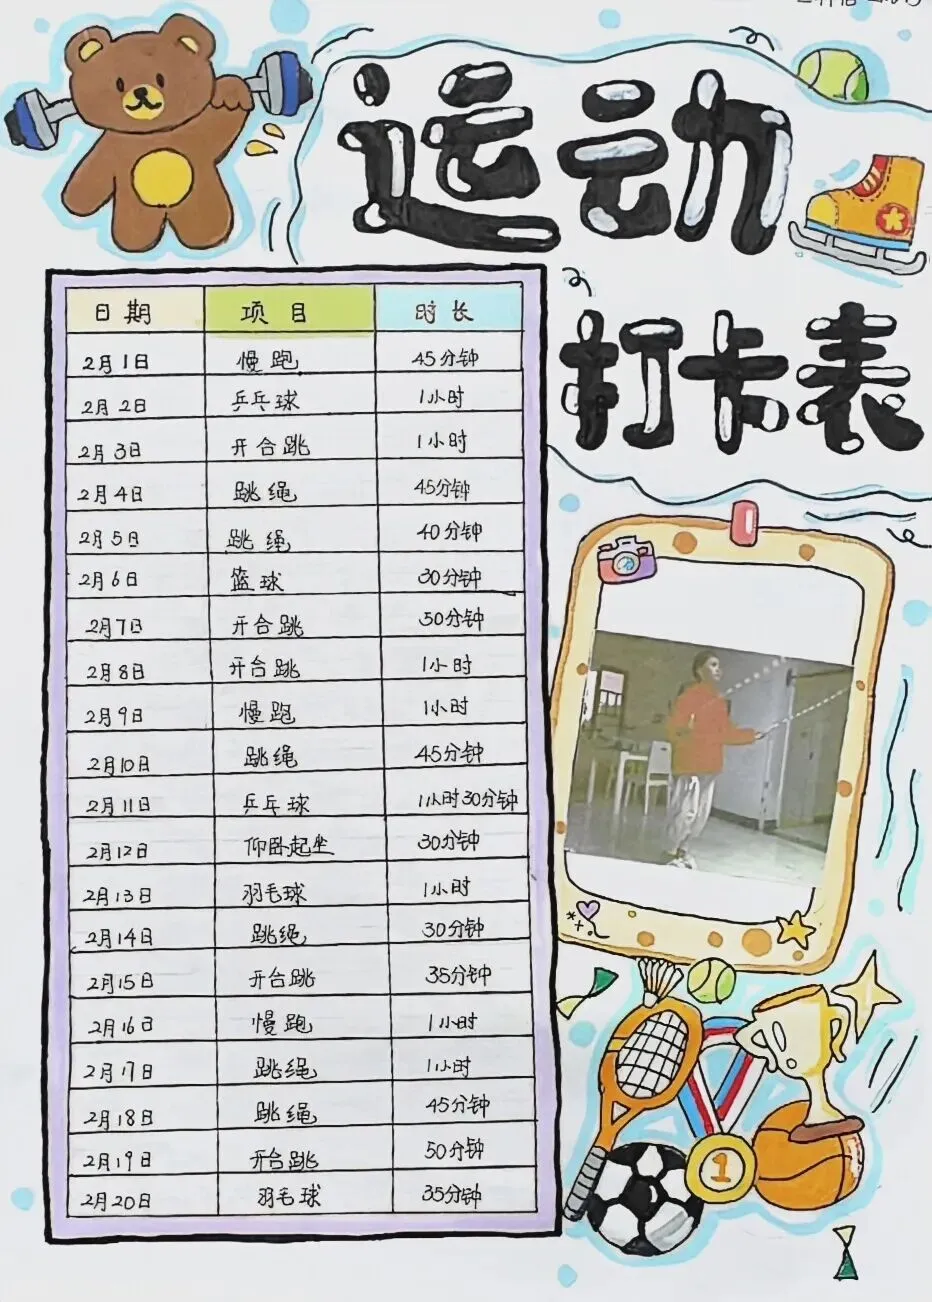 运动
打卡表
日期 项目 时长
2月1日 慢跑 45分钟
2月2日 乒乓球 1小时
2月3日 开合跳 1小时
2月4日 跳绳 45分钟
2月5日 跳绳 40分钟
2月6日 篮球 30分钟
2月7日 开合跳 50分钟
2月8日 开台跳 1小时
2月9日 慢跑 1小时
2月10日 跳绳 45分钟
2月11日 乒乓球 1小时30分钟
2月12日 仰卧起坐 30分钟
2月13日 羽毛球 1小时
2月14日 跳绳 30分钟
2月15日 开台跳 35分钟
2月16日 慢跑 1小时
2月17日 跳绳 1小时
2月18日 跳绳 45分钟
2月19日 开台跳 50分钟
2月20日 羽毛球 35分钟
1